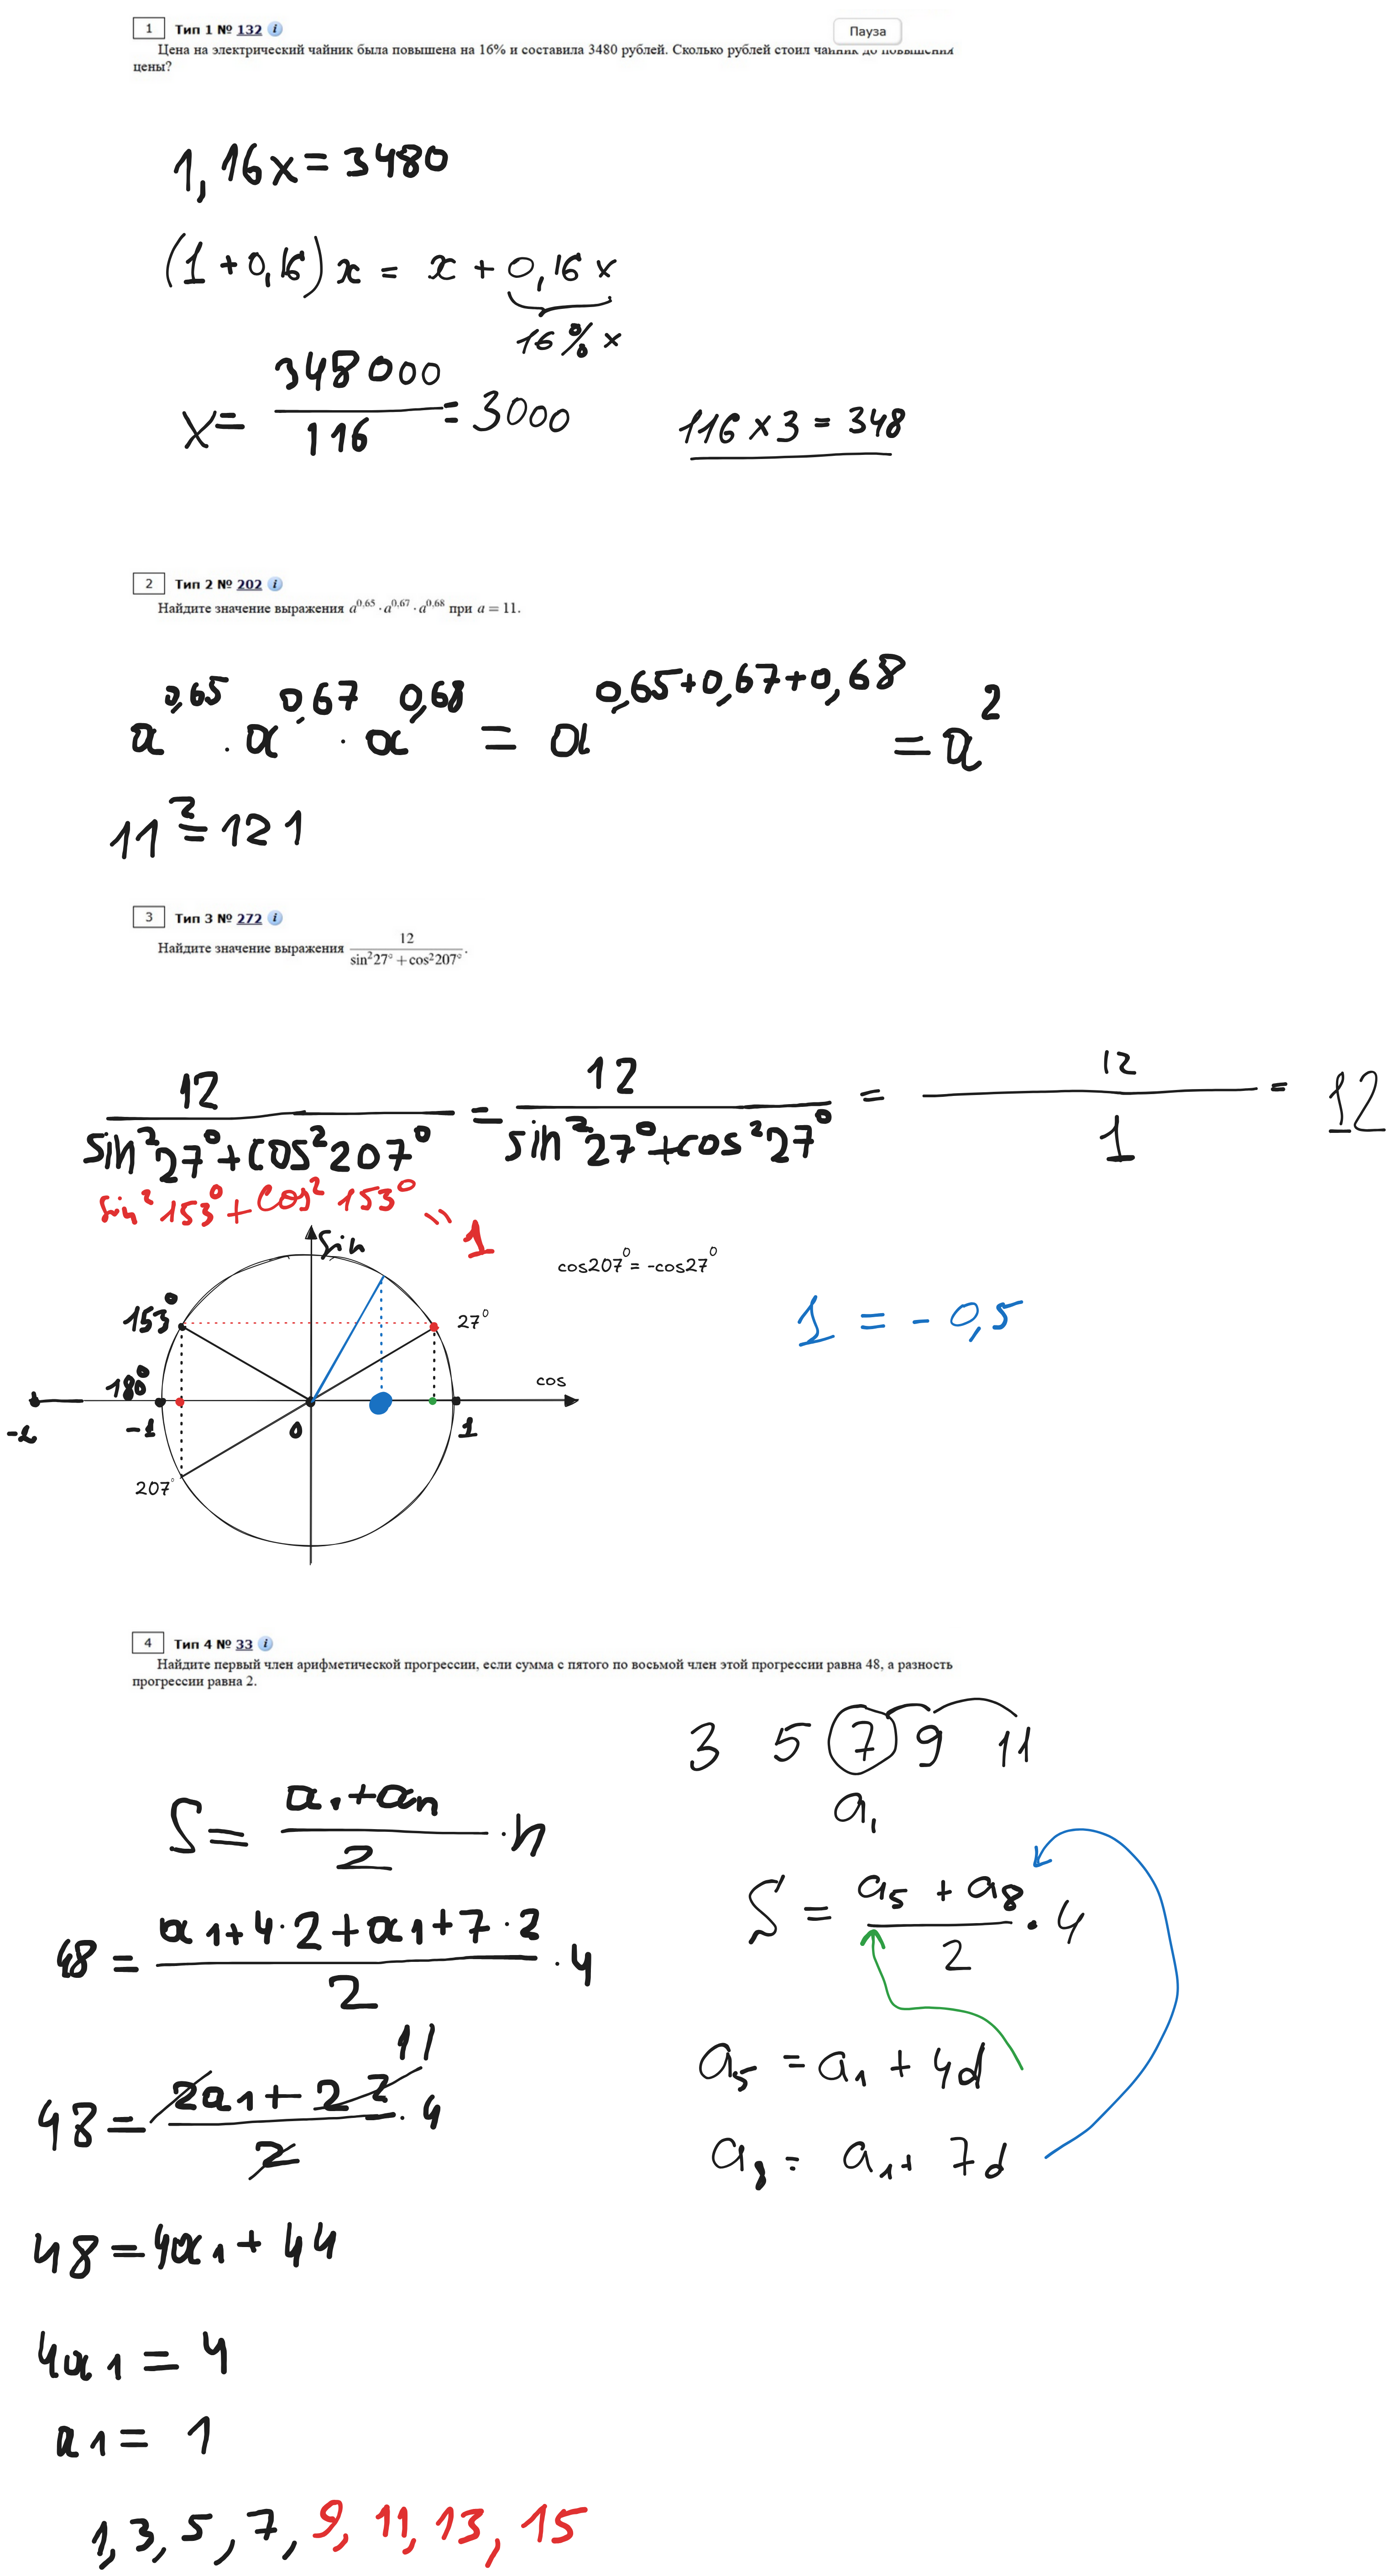 1 Тип 1 № 132 i
Пауза
Цена на электрический чайник была повышена на 16% и составила 3480 рублей. Сколько рублей стоил чайник до повышения
цены?
1,16x = 3480
(1 + 0,16) x = x + 0,16 x
16 % x
x = 348000/116 = 3000
116 x 3 = 348
2 Тип 2 № 202 i
Найдите значение выражения a^0,65 · a^0,67 · a^0,68 при a = 11.
a^0,65 · a^0,67 · a^0,68 = a^0,65+0,67+0,68 = a^2
11^2 = 121
3 Тип 3 № 272 i
Найдите значение выражения 12/(sin²27° + cos²207°).
12/(sin²27° + cos²207°) = 12/(sin²27° + cos²27°) = 12/1 = 12
sin²153° + cos²153° = 1
sin
cos207° = -cos27°
1 = - 0,5
153°
27°
180°
cos
-2
-1
0
1
207°
4 Тип 4 № 33 i
Найдите первый член арифметической прогрессии, если сумма с пятого по восьмой член этой прогрессии равна 48, а разность
прогрессии равна 2.
3 5 7 9 11
a₁
S = (a₁ + aₙ)/2 · n
S = (a₅ + a₈)/2 · 4
48 = (a1 + 4 · 2 + a1 + 7 · 2)/2 · 4
11
48 = (2a1 + 22)/2 · 4
a₅ = a₁ + 4d
a₈ = a₁ + 7d
48 = 4a1 + 44
4a1 = 4
a1 = 1
1, 3, 5, 7, 9, 11, 13, 15